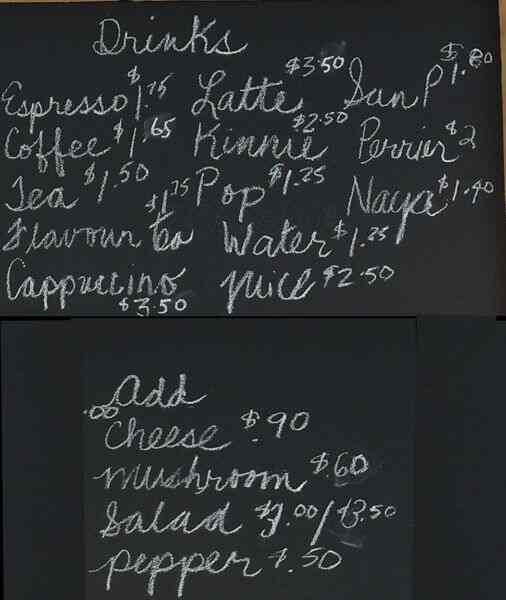 Drinks
Espresso $1.75 Latte $3.50 San P $1.80
Coffee $1.65 Kinnie $2.50 Perrier $2
Tea $1.50 Pop $1.25 Naya $1.40
Flavour $1.75 Water $1.25
Cappuccino $3.50 Juice $2.50
Add
.00
Cheese $.90
mushroom $.60
Salad /$3.50
pepper .50